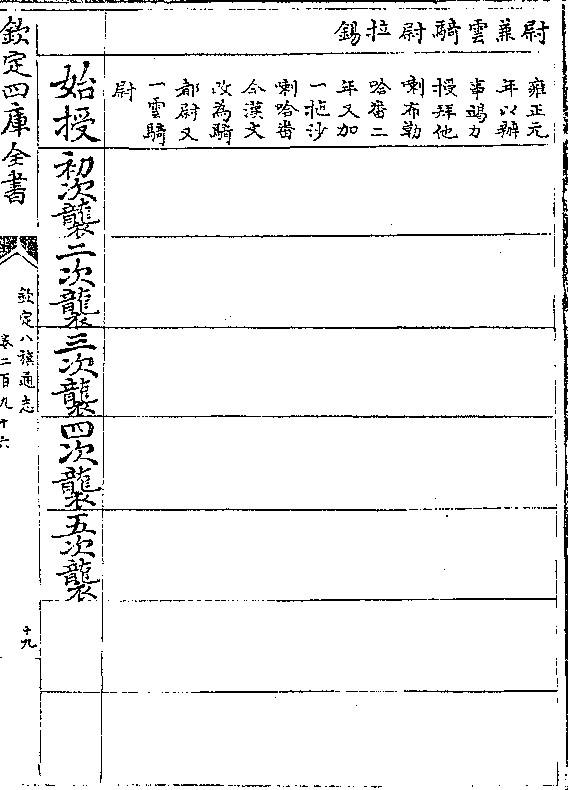 尉兼雲騎尉拉錫
雍正元
年以辦
事竭力
授拜他
喇布勒
哈番二
年又加
一拖沙
喇哈番
今漢文
改為騎
都尉又
一雲騎
尉
始授
初次襲
二次襲
三次襲
四次襲
五次襲
欽定四庫全書
欽定八旗通志
卷二百九十六
十九